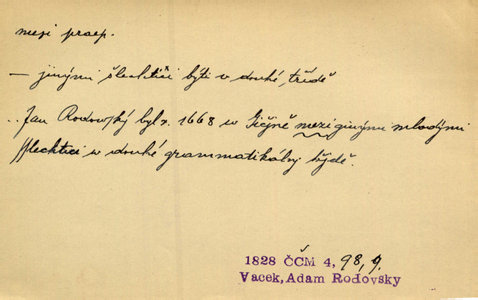 mezi praep.
— jinými šlechtici býti v druhé třídě
.. Jan Rodowský byl r. 1668 w Gičjně mezi ginými mlodými
šlechtici w druhé grammatikálnj třjdě.
1828 ČČM 4, 98, 9.
Vacek, Adam Rodovsky